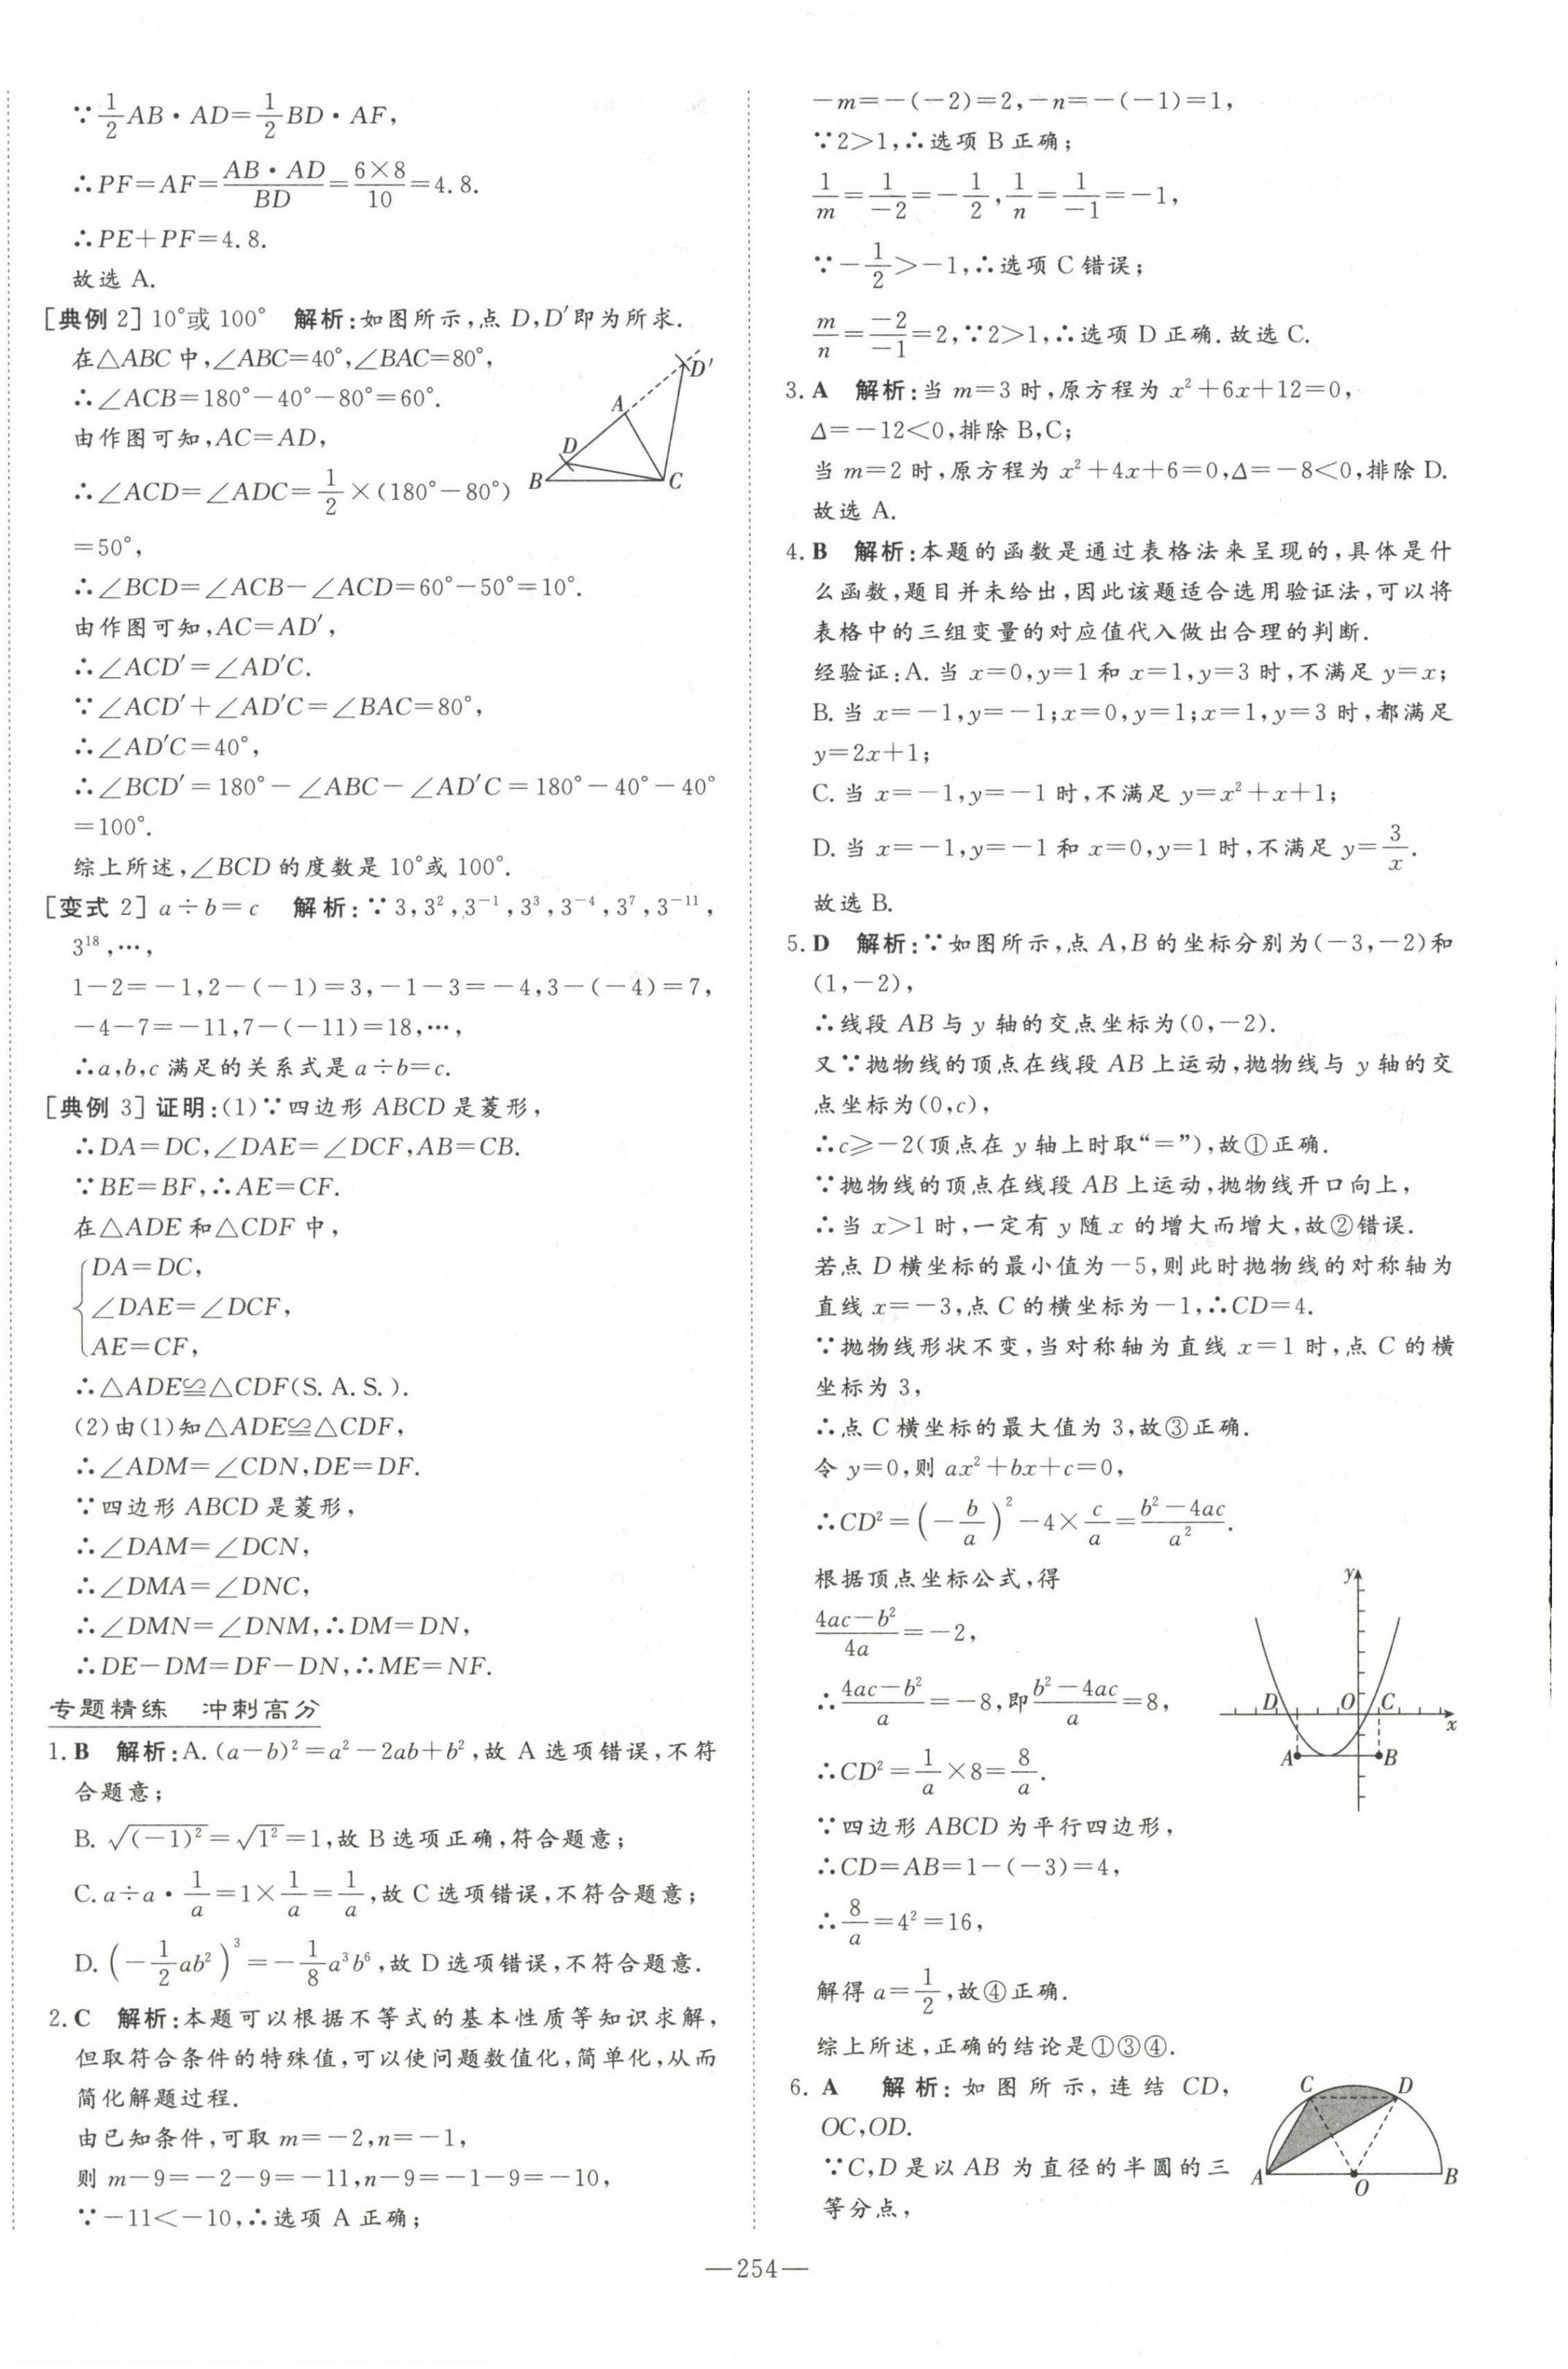 ∵$\frac{1}{2}$AB·AD=$\frac{1}{2}$BD·AF,
∴PF=AF=$\frac{AB·AD}{BD}$=$\frac{6×8}{10}$=4.8.
∴PE+PF=4.8.
故选 A.
[典例 2] 10°或 100° 解析:如图所示,点 D,D′即为所求.
在△ABC 中,∠ABC=40°,∠BAC=80°,
∴∠ACB=180°-40°-80°=60°.
由作图可知,AC=AD,
∴∠ACD=∠ADC=$\frac{1}{2}$×(180°-80°)
=50°,
∴∠BCD=∠ACB-∠ACD=60°-50°=10°.
由作图可知,AC=AD′,
∴∠ACD′=∠AD′C.
∵∠ACD′+∠AD′C=∠BAC=80°,
∴∠AD′C=40°,
∴∠BCD′=180°-∠ABC-∠AD′C=180°-40°-40°
=100°.
综上所述,∠BCD 的度数是 10°或 100°.
D′
A
D
B
C
[变式 2] a÷b=c 解析:∵3,3²,3⁻¹,3³,3⁻⁴,3⁷,3⁻¹¹,
3¹⁸,…,
1-2=-1,2-(-1)=3,-1-3=-4,3-(-4)=7,
-4-7=-11,7-(-11)=18,…,
∴a,b,c 满足的关系式是 a÷b=c.
[典例 3] 证明:(1)∵四边形 ABCD 是菱形,
∴DA=DC,∠DAE=∠DCF,AB=CB.
∵BE=BF,∴AE=CF.
在△ADE 和△CDF 中,
DA=DC,
∠DAE=∠DCF,
AE=CF,
∴△ADE≌△CDF(S.A.S.).
(2)由(1)知△ADE≌△CDF,
∴∠ADM=∠CDN,DE=DF.
∵四边形 ABCD 是菱形,
∴∠DAM=∠DCN,
∴∠DMA=∠DNC,
∴∠DMN=∠DNM,∴DM=DN,
∴DE-DM=DF-DN,∴ME=NF.
专题精练 冲刺高分
1. B 解析:A. (a-b)²=a²-2ab+b²,故 A 选项错误,不符
合题意;
B. $\sqrt{(-1)^2}$=$\sqrt{1^2}$=1,故 B 选项正确,符合题意;
C. a÷a·$\frac{1}{a}$=1×$\frac{1}{a}$=$\frac{1}{a}$,故 C 选项错误,不符合题意;
D. $\left(-\frac{1}{2}ab^2\right)^3$=-$\frac{1}{8}$a³b⁶,故 D 选项错误,不符合题意.
2. C 解析:本题可以根据不等式的基本性质等知识求解,
但取符合条件的特殊值,可以使问题数值化,简单化,从而
简化解题过程.
由已知条件,可取 m=-2,n=-1,
则 m-9=-2-9=-11,n-9=-1-9=-10,
∵-11<-10,∴选项 A 正确;
-m=-(-2)=2,-n=-(-1)=1,
∵2>1,∴选项 B 正确;
$\frac{1}{m}$=$\frac{1}{-2}$=-$\frac{1}{2}$,$\frac{1}{n}$=$\frac{1}{-1}$=-1,
∵-$\frac{1}{2}$>-1,∴选项 C 错误;
$\frac{m}{n}$=$\frac{-2}{-1}$=2,∵2>1,∴选项 D 正确.故选 C.
3. A 解析:当 m=3 时,原方程为 x²+6x+12=0,
Δ=-12<0,排除 B,C;
当 m=2 时,原方程为 x²+4x+6=0,Δ=-8<0,排除 D.
故选 A.
4. B 解析:本题的函数是通过表格法来呈现的,具体是什
么函数,题目并未给出,因此该题适合选用验证法,可以将
表格中的三组变量的对应值代入做出合理的判断.
经验证:A. 当 x=0,y=1 和 x=1,y=3 时,不满足 y=x;
B. 当 x=-1,y=-1;x=0,y=1;x=1,y=3 时,都满足
y=2x+1;
C. 当 x=-1,y=-1 时,不满足 y=x²+x+1;
D. 当 x=-1,y=-1 和 x=0,y=1 时,不满足 y=$\frac{3}{x}$.
故选 B.
5. D 解析:∵如图所示,点 A,B 的坐标分别为(-3,-2)和
(1,-2),
∴线段 AB 与 y 轴的交点坐标为(0,-2).
又∵抛物线的顶点在线段 AB 上运动,抛物线与 y 轴的交
点坐标为(0,c),
∴c≥-2(顶点在 y 轴上时取“=”),故①正确.
∵抛物线的顶点在线段 AB 上运动,抛物线开口向上,
∴当 x>1 时,一定有 y 随 x 的增大而增大,故②错误.
若点 D 横坐标的最小值为-5,则此时抛物线的对称轴为
直线 x=-3,点 C 的横坐标为-1,∴CD=4.
∵抛物线形状不变,当对称轴为直线 x=1 时,点 C 的横
坐标为 3,
∴点 C 横坐标的最大值为 3,故③正确.
令 y=0,则 ax²+bx+c=0,
∴CD²=$\left(-\frac{b}{a}\right)^2$-4×$\frac{c}{a}$=$\frac{b^2-4ac}{a^2}$.
根据顶点坐标公式,得
$\frac{4ac-b^2}{4a}$=-2,
∴$\frac{4ac-b^2}{a}$=-8,即$\frac{b^2-4ac}{a}$=8,
∴CD²=$\frac{1}{a}$×8=$\frac{8}{a}$.
∵四边形 ABCD 为平行四边形,
∴CD=AB=1-(-3)=4,
∴$\frac{8}{a}$=4²=16,
解得 a=$\frac{1}{2}$,故④正确.
综上所述,正确的结论是①③④.
y
D
O
C
x
A
B
6. A 解析:如图所示,连结 CD,
OC,OD.
∵C,D 是以 AB 为直径的半圆的三
等分点,
C
D
A
O
B
—254—